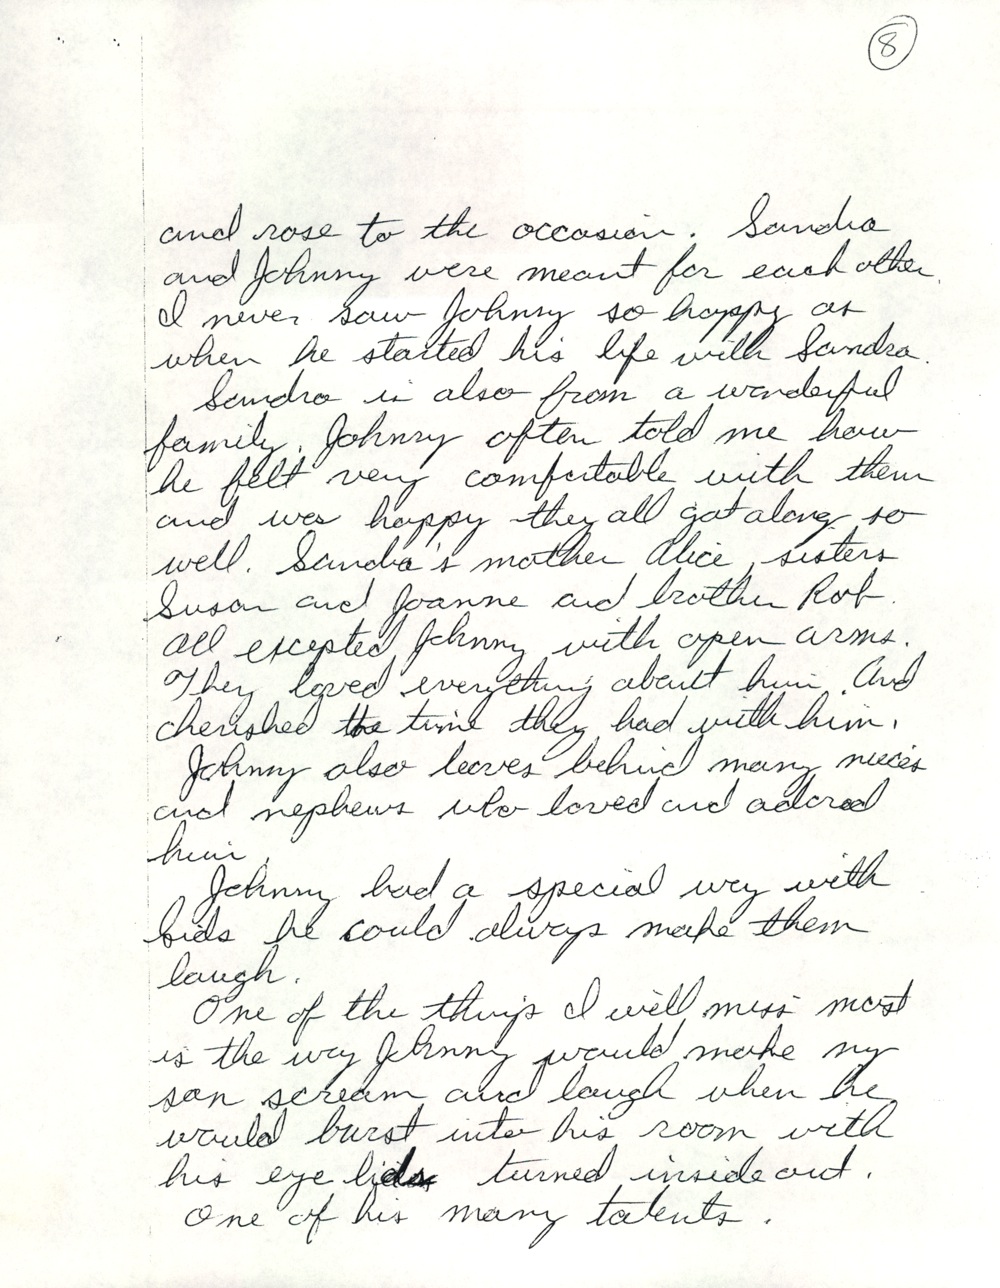 8
and rose to the occasion. Sandra
and Johnny were meant for each other.
I never saw Johnny so happy as
when he started his life with Sandra.
Sandra is also from a wonderful
family. Johnny often told me how
he felt very comfortable with them
and was happy they all got along so
well. Sandra's mother Alice, sisters
Susan and Joanne and brother Rob.
All excepted Johnny with open arms.
They loved everything about him. And
cherished the time they had with him.
Johnny also leaves behind many nieces
and nephews who loved and adored
him.
Johnny had a special way with
kids he could always make them
laugh.
One of the things I will miss most
is the way Johnny would make my
son scream and laugh when he
would burst into his room with
his eye lids turned inside out.
One of his many talents.